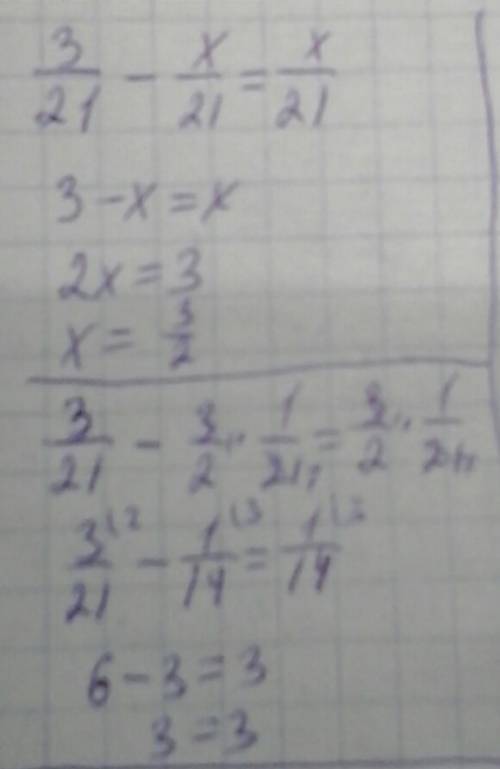 3/21 - x/21 = x/21
3 - x = x
2x = 3
x = 3/2
3/21 - 3/2 · 1/21 = 3/2 · 1/21
3/21 - 1/14 = 1/14
6 - 3 = 3
3 = 3